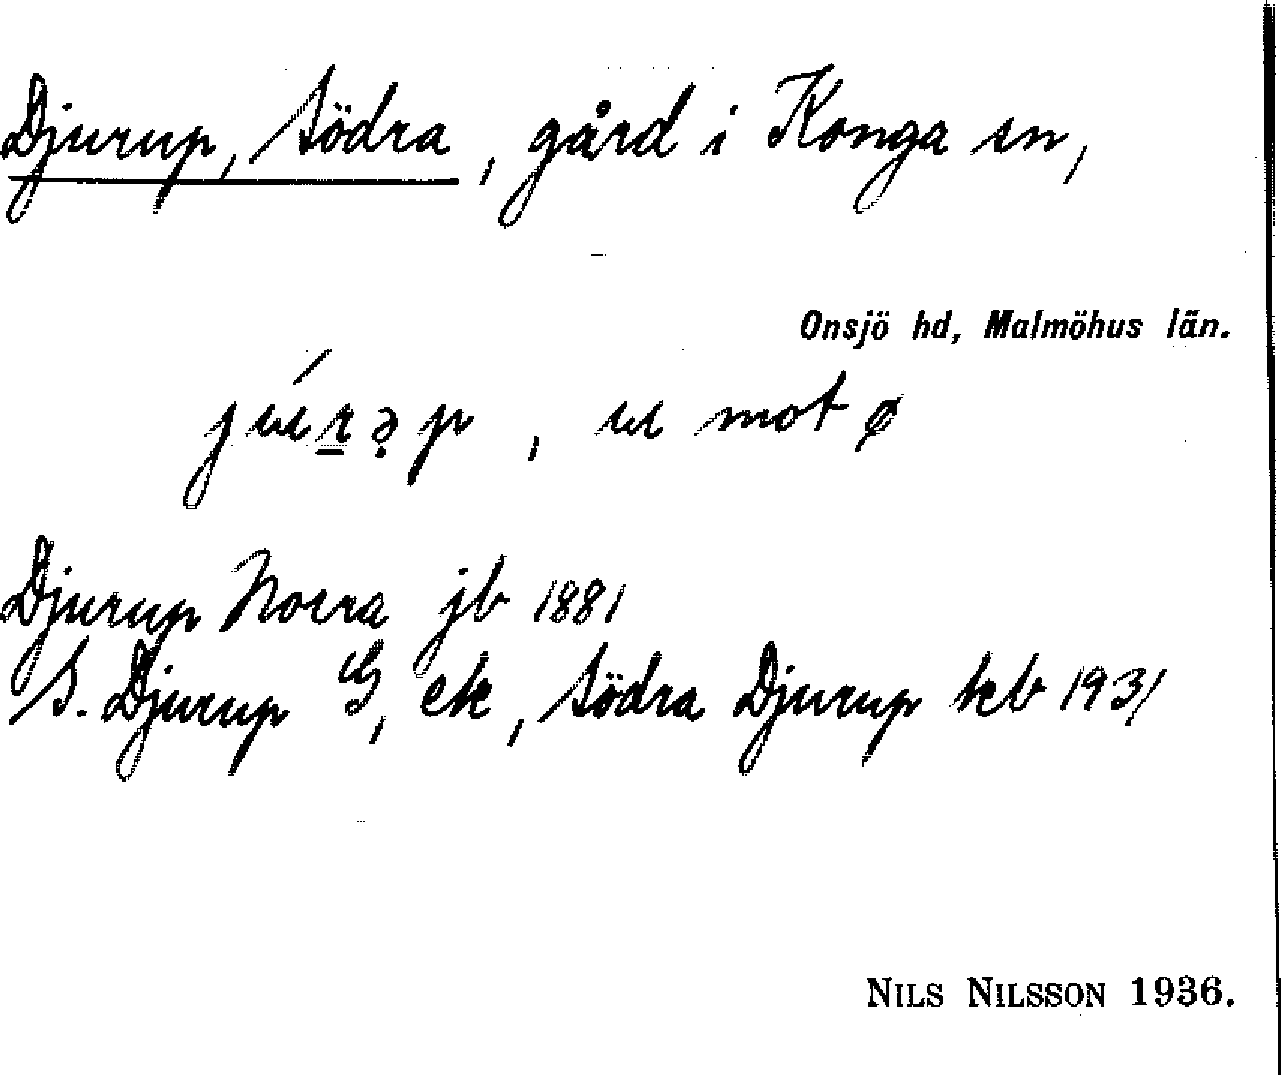 Djurup, Södra, gård i Konga sn,
Onsjö hd, Malmöhus län.
júrə̣p, u mot ø
Djurup Norra jb 1881
S. Djurup G, ek, Södra Djurup kb 1931
NILS NILSSON 1936.